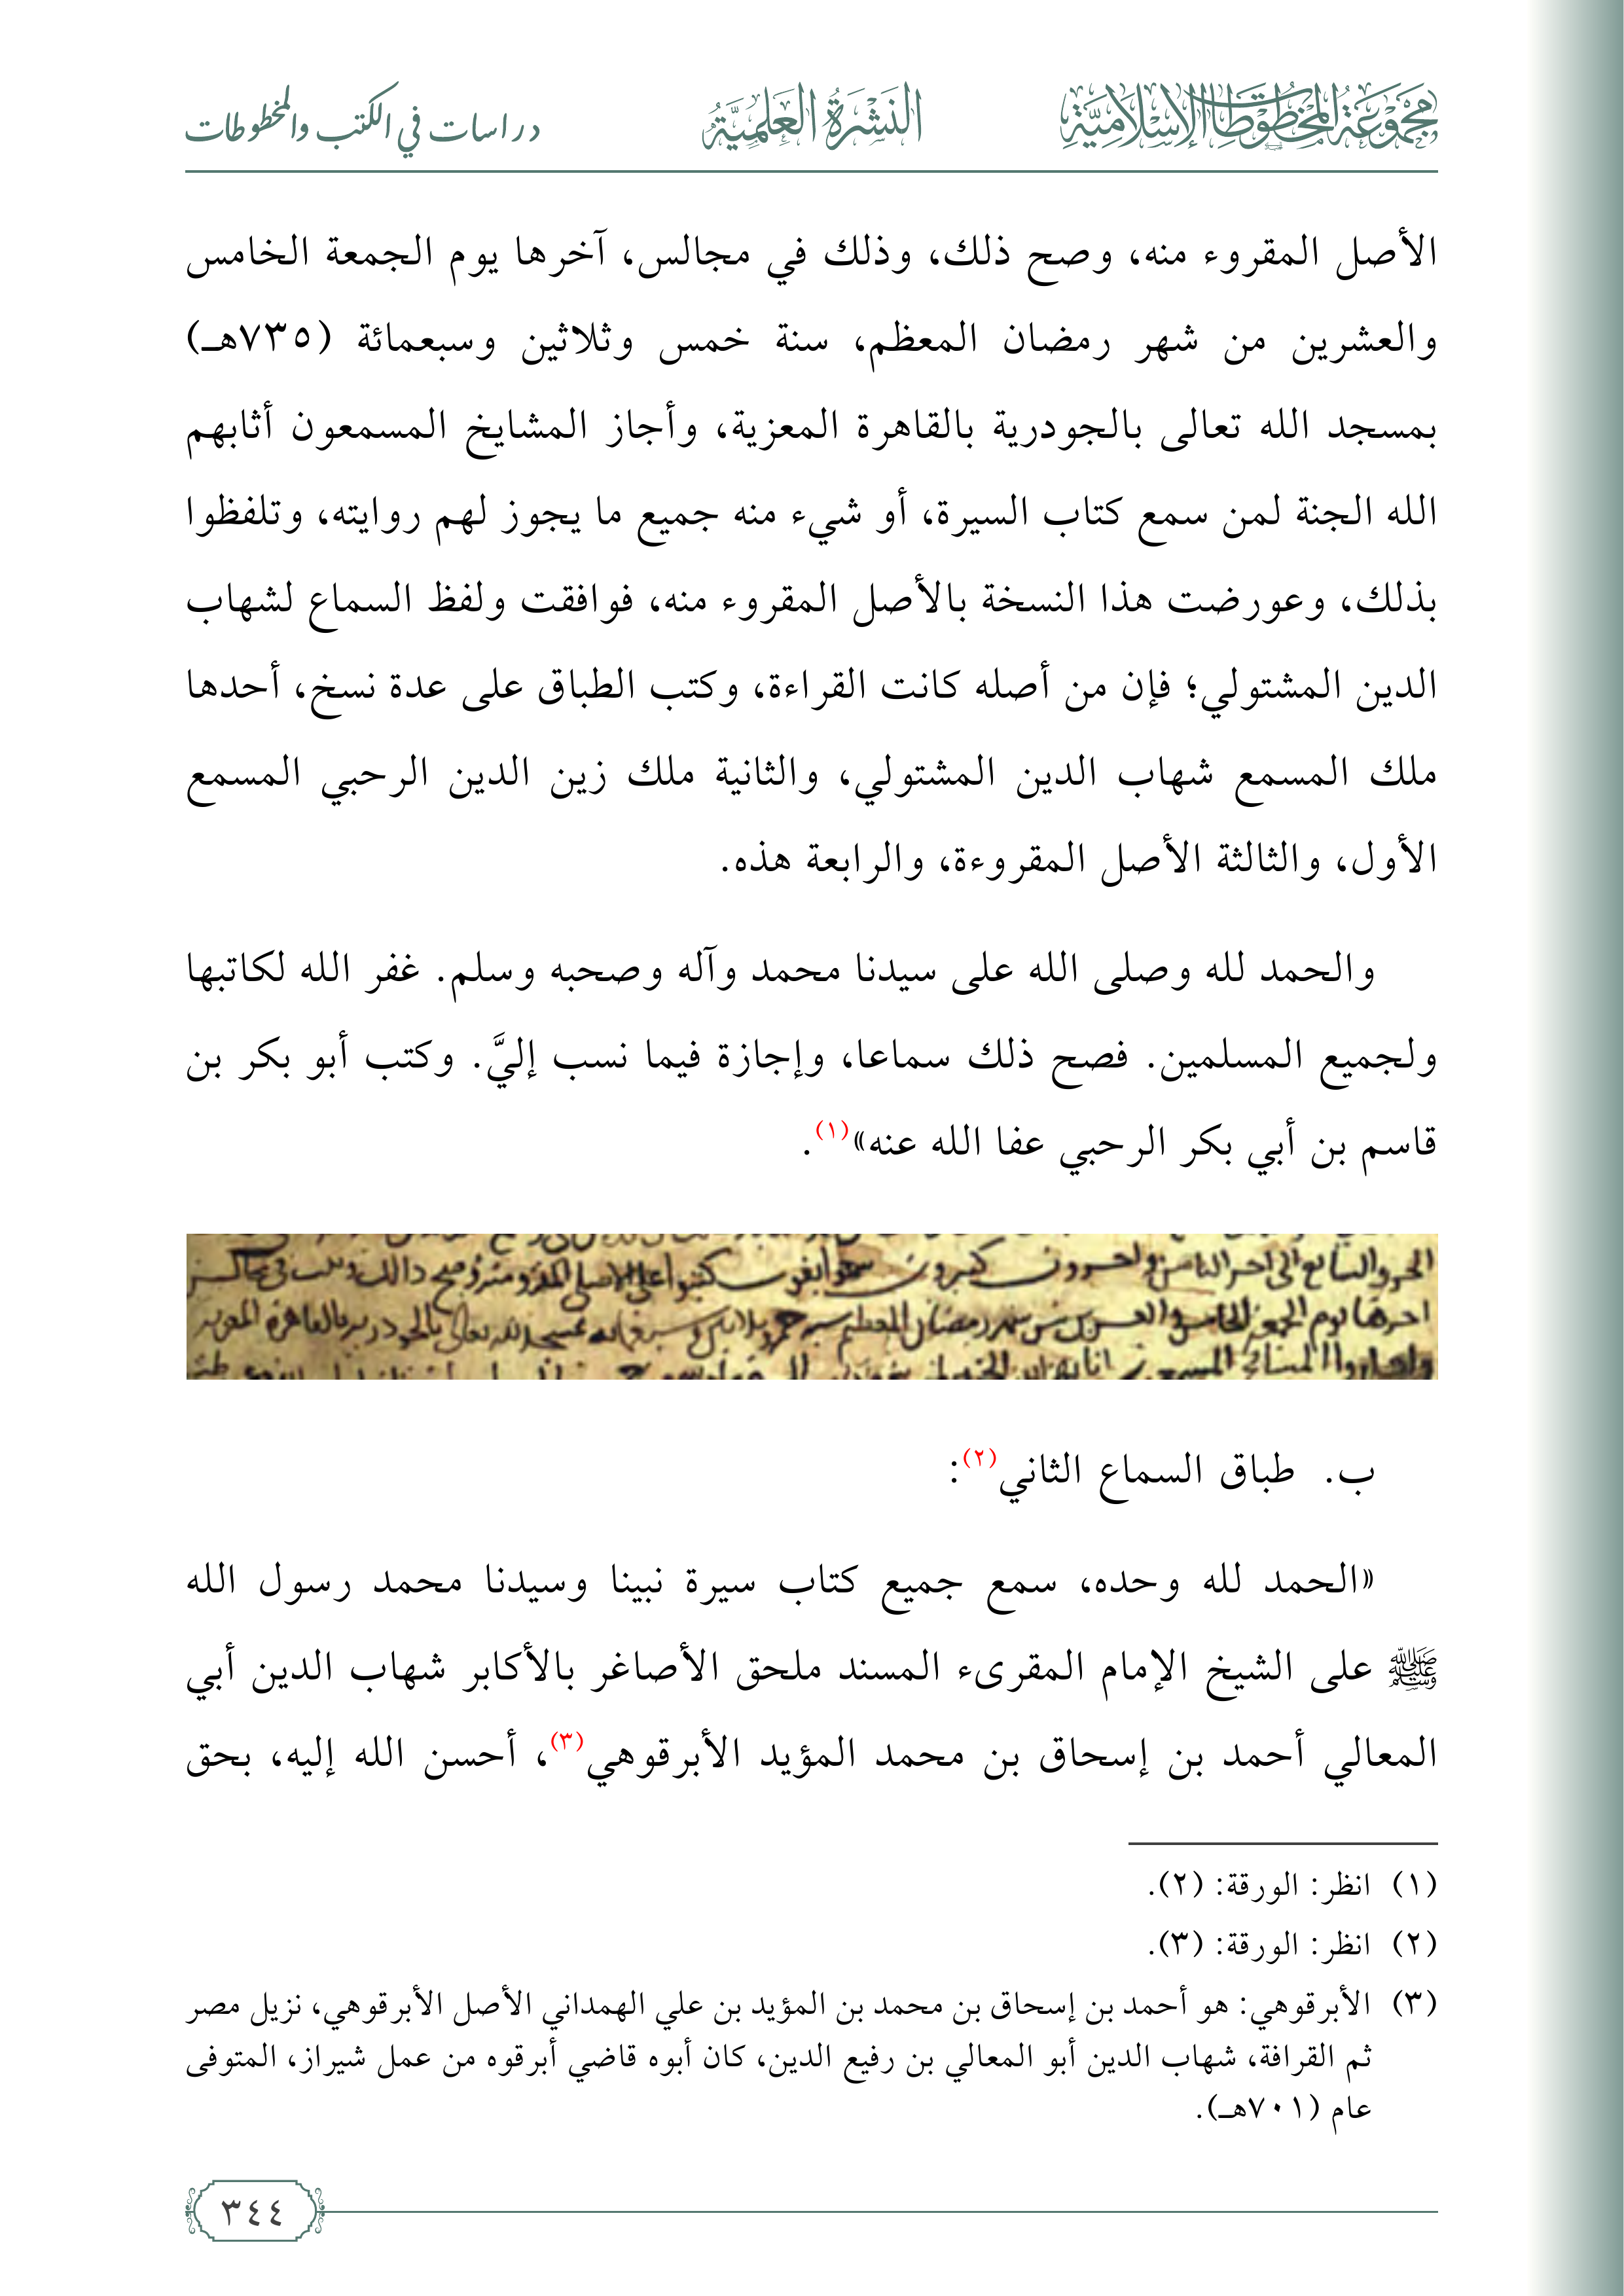 مَجْمُوعَةُ المَخْطُوطَاتِ الإِسْلَامِيَّةِ
النَّشْرَةُ العِلْمِيَّةُ
دراسات في الكتب والمخطوطات
الأصل المقروء منه، وصح ذلك، وذلك في مجالس، آخرها يوم الجمعة الخامس
والعشرين من شهر رمضان المعظم، سنة خمس وثلاثين وسبعمائة (٧٣٥هـ)
بمسجد الله تعالى بالجودرية بالقاهرة المعزية، وأجاز المشايخ المسمعون أثابهم
الله الجنة لمن سمع كتاب السيرة، أو شيء منه جميع ما يجوز لهم روايته، وتلفظوا
بذلك، وعورضت هذا النسخة بالأصل المقروء منه، فوافقت ولفظ السماع لشهاب
الدين المشتولي؛ فإن من أصله كانت القراءة، وكتب الطباق على عدة نسخ، أحدها
ملك المسمع شهاب الدين المشتولي، والثانية ملك زين الدين الرحبي المسمع
الأول، والثالثة الأصل المقروءة، والرابعة هذه.
والحمد لله وصلى الله على سيدنا محمد وآله وصحبه وسلم. غفر الله لكاتبها
ولجميع المسلمين. فصح ذلك سماعا، وإجازة فيما نسب إليَّ. وكتب أبو بكر بن
قاسم بن أبي بكر الرحبي عفا الله عنه»(١).
ب. طباق السماع الثاني(٢):
«الحمد لله وحده، سمع جميع كتاب سيرة نبينا وسيدنا محمد رسول الله
ﷺ على الشيخ الإمام المقرىء المسند ملحق الأصاغر بالأكابر شهاب الدين أبي
المعالي أحمد بن إسحاق بن محمد المؤيد الأبرقوهي(٣)، أحسن الله إليه، بحق
(١) انظر: الورقة: (٢).
(٢) انظر: الورقة: (٣).
(٣) الأبرقوهي: هو أحمد بن إسحاق بن محمد بن المؤيد بن علي الهمداني الأصل الأبرقوهي، نزيل مصر
ثم القرافة، شهاب الدين أبو المعالي بن رفيع الدين، كان أبوه قاضي أبرقوه من عمل شيراز، المتوفى
عام (٧٠١هـ).
٣٤٤